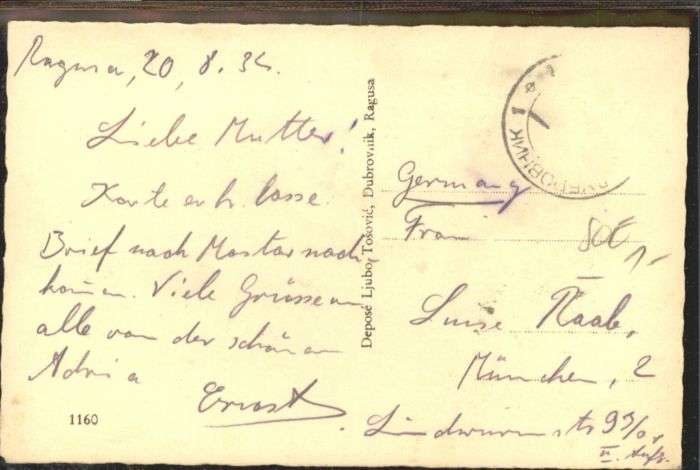 Ragusa, 20, 8. 34.
Liebe Mutter!
Karte erh. lasse
Brief nach Mostar nach
kommen. Viele Grüsse an
alle von der schönen
Adria
Ernst
1160
Deposé Ljubo Tošović, Dubrovnik, Ragusa
ДУБРОВНИК 1
Germany
Frau
Luise Raab,
München, 2
Lindwurmstr 93/0
II. Aufg.
1,-